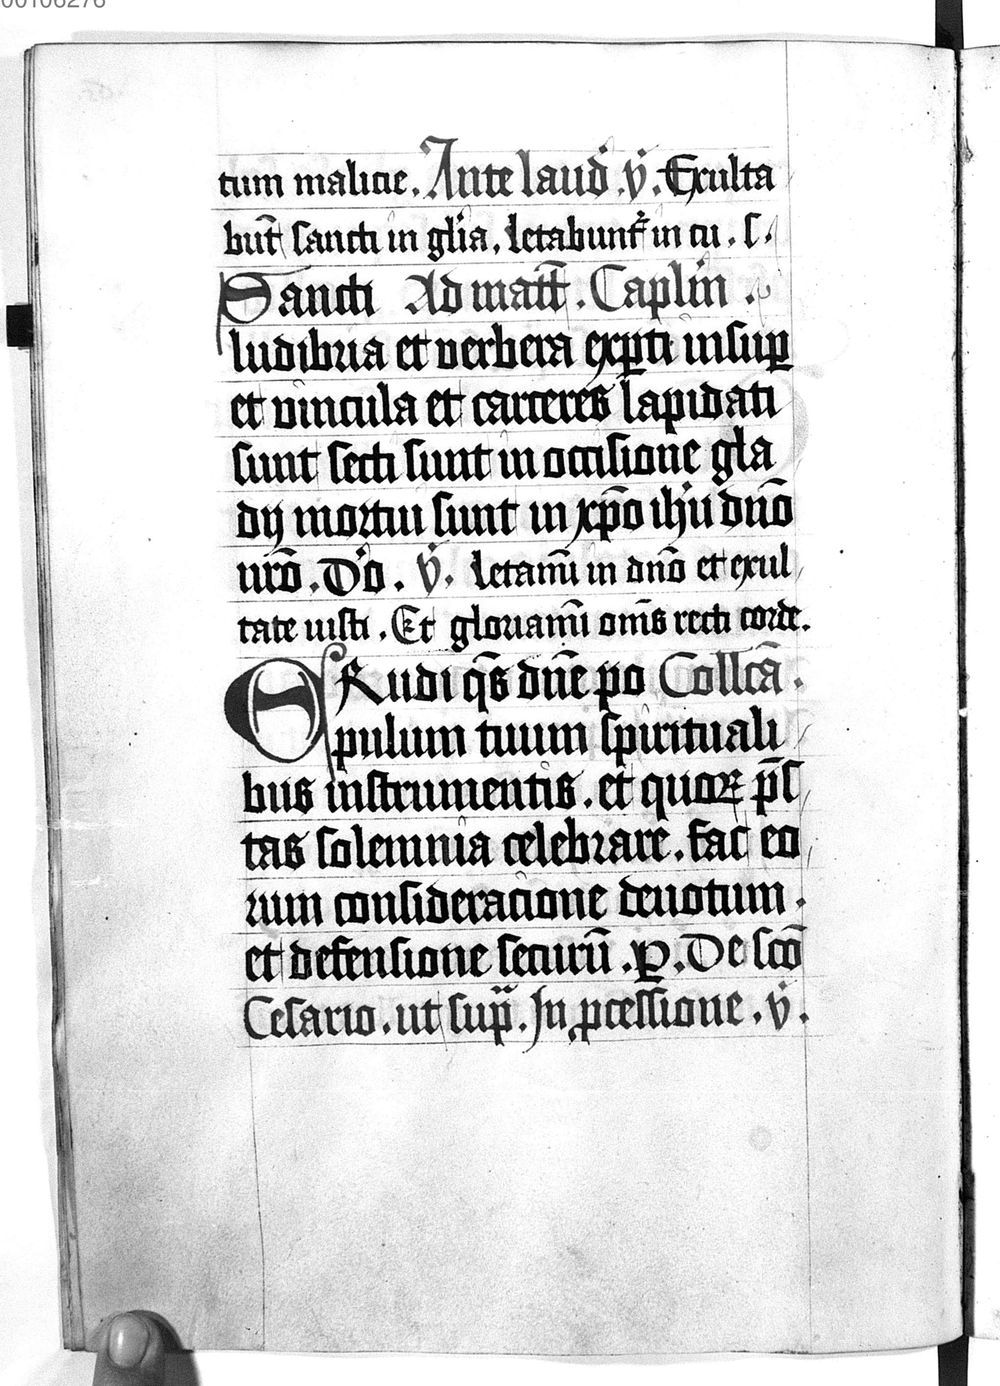 00106276
tum malicie. Ante laud̉. v̉. Exulta
būt sancti in gl̉ia. letabunt᷑ in cu. s.
Sancti Ad matt̄. Caplm̉.
ludibria et verbera exꝑti insuꝑ
et vincula et carceres lapidati
sunt secti sunt in occisione gla
dij mortui sunt in xp̄o ih̉u dn̄o
nr̄o. D̉o. v̉. letami̅ in dn̄o et exul
tate iusti. Et gloriami̅ om̄s recti corde.
ERudi qs̄ dn̄e po Collcā.
pulum tuum spirituali
bus instrumentis. et quoꝝ p̄s
tas solemnia celebrare. fac eo
rum consideracione deuotum.
et defensione securū. ꝑ. De sc̄o
Cesario. ut sup̄. In ꝓcessione. v̉.